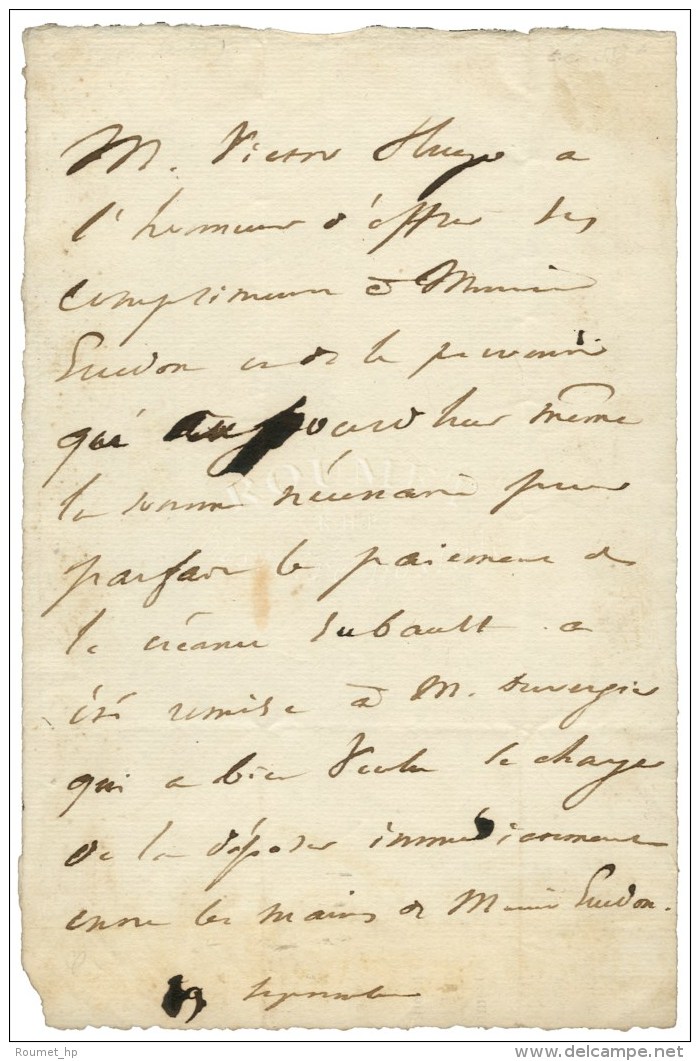 M. Victor Hugo a
l'honneur d'offrir ses
compliments à Monsieur
Guedon et de le prévenir
qu'aujourd'hui même
la somme nécessaire pour
parfaire le paiement de
la créance a
été remise à M. Duvergier
qui a bien voulu se charger
de la déposer immédiatement
entre les mains de Monsieur Guedon.
19 septembre
ROUMET
Roumet_hp
delcampe.net